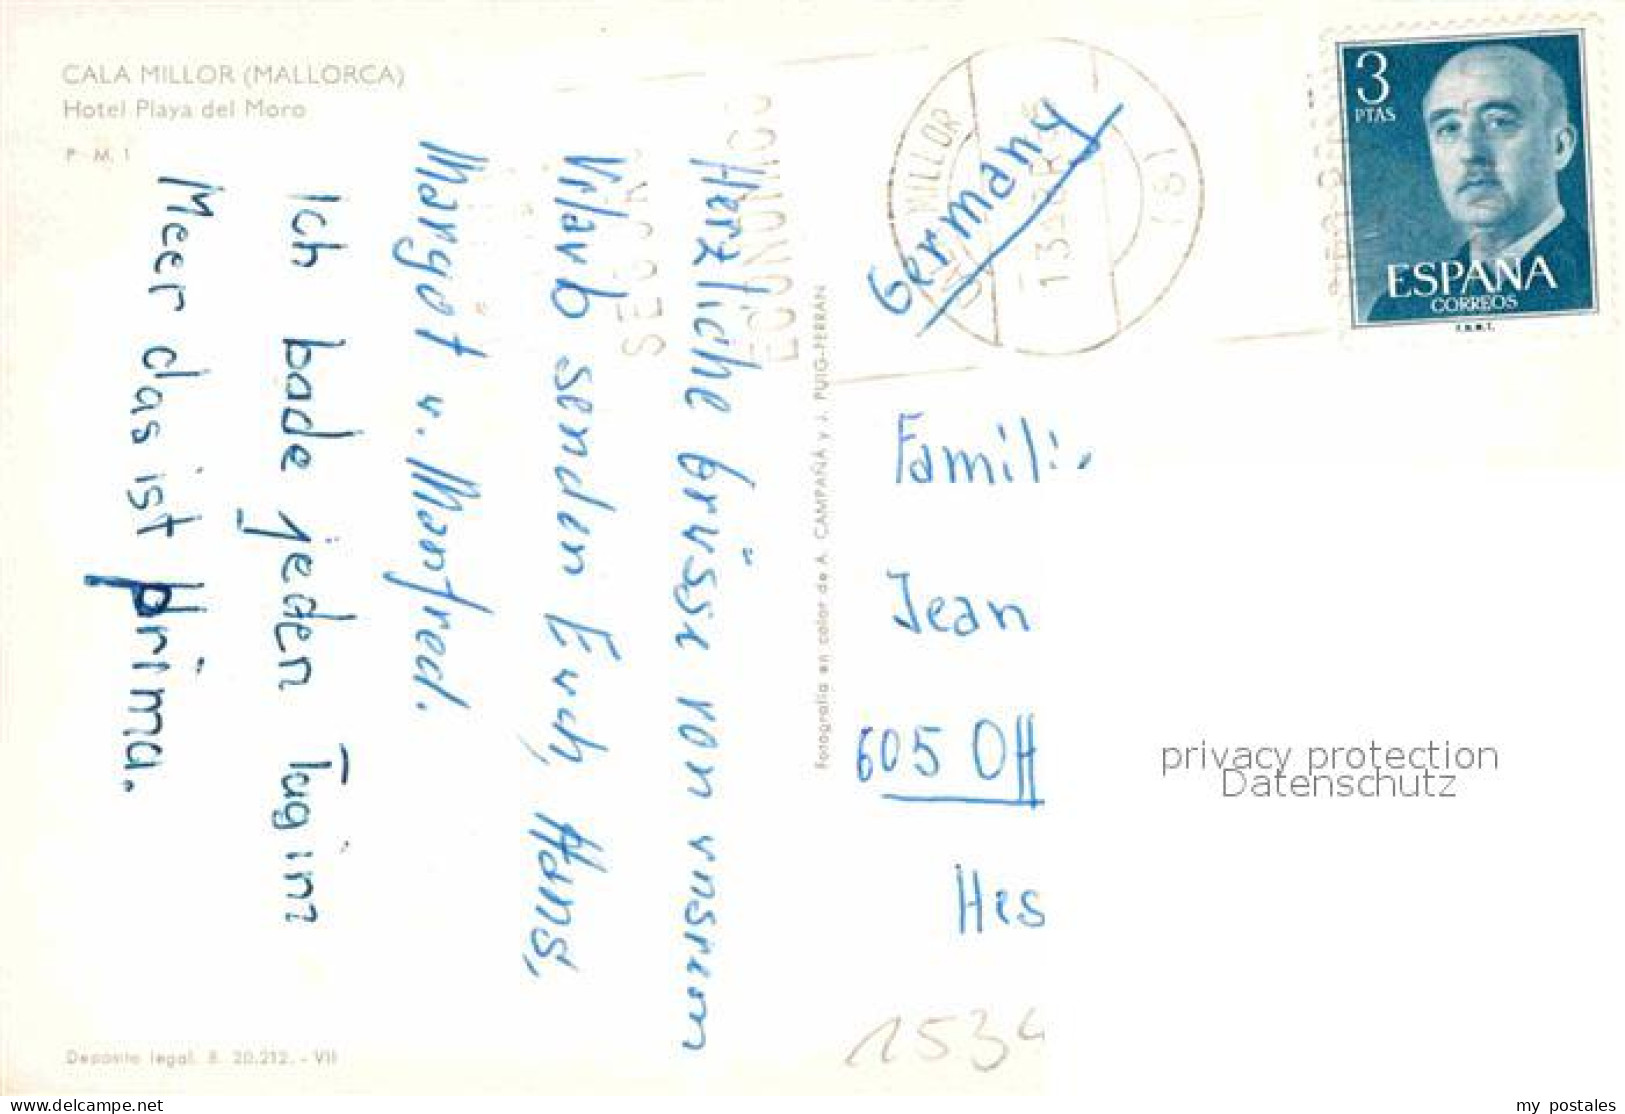 CALA MILLOR (MALLORCA)
Hotel Playa del Moro
P. M. 1
Herzliche Grüsse von unserem
Urlaub senden Euch, Hans,
Margot u. Manfred.
Ich bade jeden Tag im
Meer das ist prima.
Depósito legal. B. 20.212. - VII
Fotografía en color de A. CAMPAÑA y J. PUIG-FERRAN
MILLOR
13
(81)
ECONOMICO
Germany
3
PTAS
ESPAÑA
CORREOS
F.N.M.T.
Famili
Jean
605 Off
Hes
1534
privacy protection
Datenschutz
www.delcampe.net
my_postales